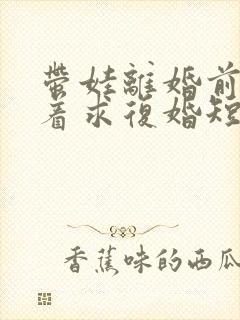 帶娃離婚前
着求復婚短
香蕉味的西瓜